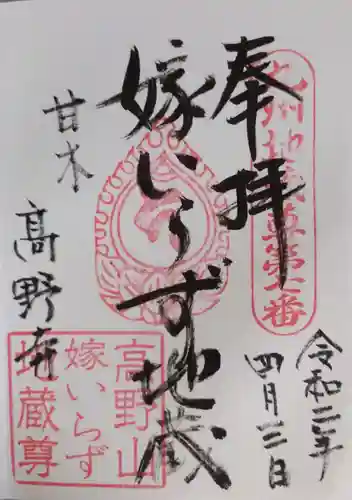 奉拝
九州地蔵尊第一番
令和二年
四月三日
嫁いらず地蔵
甘木
高野寺
高野山
嫁いらず
地蔵尊